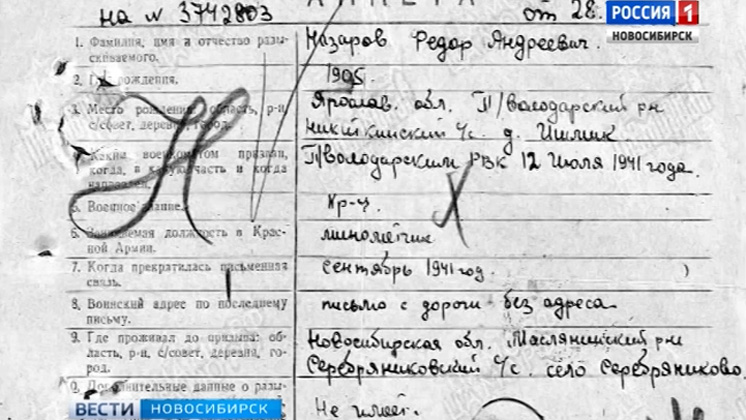 АНКЕТА
на № 3742803 от 28.
РОССИЯ 1
НОВОСИБИРСК
1. Фамилия, имя и отчество разы-
скиваемого.
Назаров Федор Андреевич.
2. Год рождения.
1905
3. Место рождения: область, р-н,
с/совет, деревня, город.
Ярослав. обл. П/володарский рн
д. Ишлик
4. Каким военкоматом призван,
когда, в какую часть и когда
направлен.
П/володарским РВК 12 Июля 1941 года.
5. Военное звание.
Кр-ц
6. Занимаемая должность в Крас-
ной Армии.
минометчик
7. Когда прекратилась письменная
связь.
сентябрь 1941 год.
8. Воинский адрес по последнему
письму.
письмо с дороги без адреса
9. Где проживал до призыва: об-
ласть, р-н, с/совет, деревня, го-
род.
Новосибирская обл. Маслянинский рн
Серебряниковский с/с. село Серебряниково.
Дополнительные данные о разы-
Не имеет.
ВЕСТИ НОВОСИБИРСК